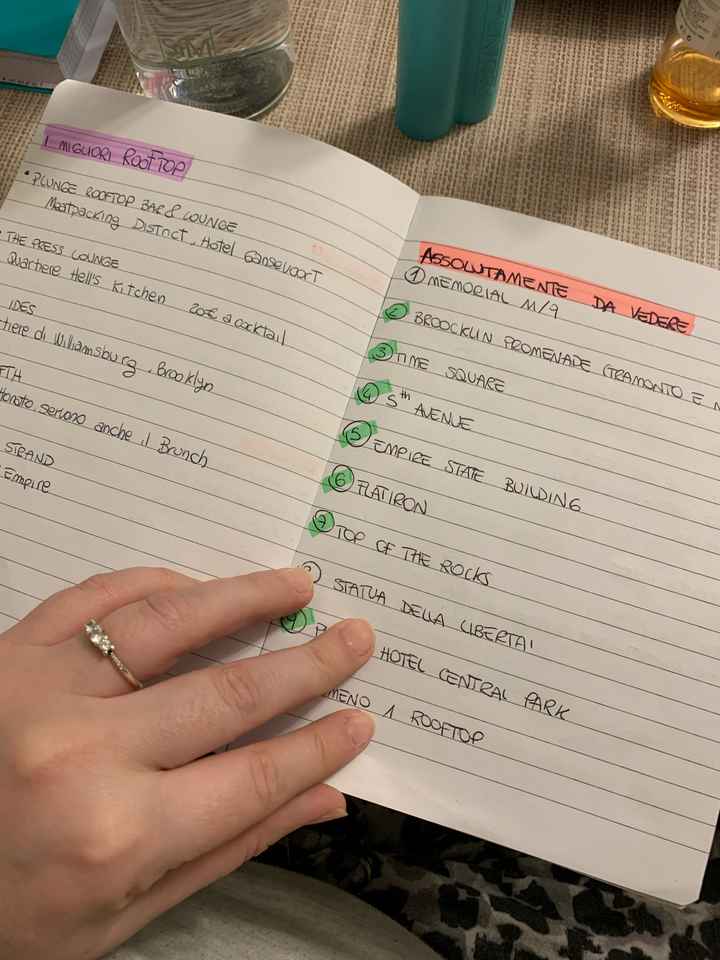 I MIGLIORI ROOFTOP
• PLUNGE ROOFTOP BAR & LOUNGE
Meatpacking District, Hotel Gansevoort
• THE PRESS LOUNGE
Quartiere Hell's Kitchen 20€ a cocktail
IDES
tiere di Williamsburg, Brooklyn
FTH
servono anche il Brunch
STRAND
Empire
ASSOLUTAMENTE DA VEDERE
① MEMORIAL 11/9
② BROOCKLIN PROMENADE (TRAMONTO E N
③ TIME SQUARE
④ 5th AVENUE
⑤ EMPIRE STATE BUILDING
⑥ FLATIRON
⑦ TOP OF THE ROCKS
STATUA DELLA LIBERTA'
⑨ HOTEL CENTRAL PARK
MENO 1 ROOFTOP